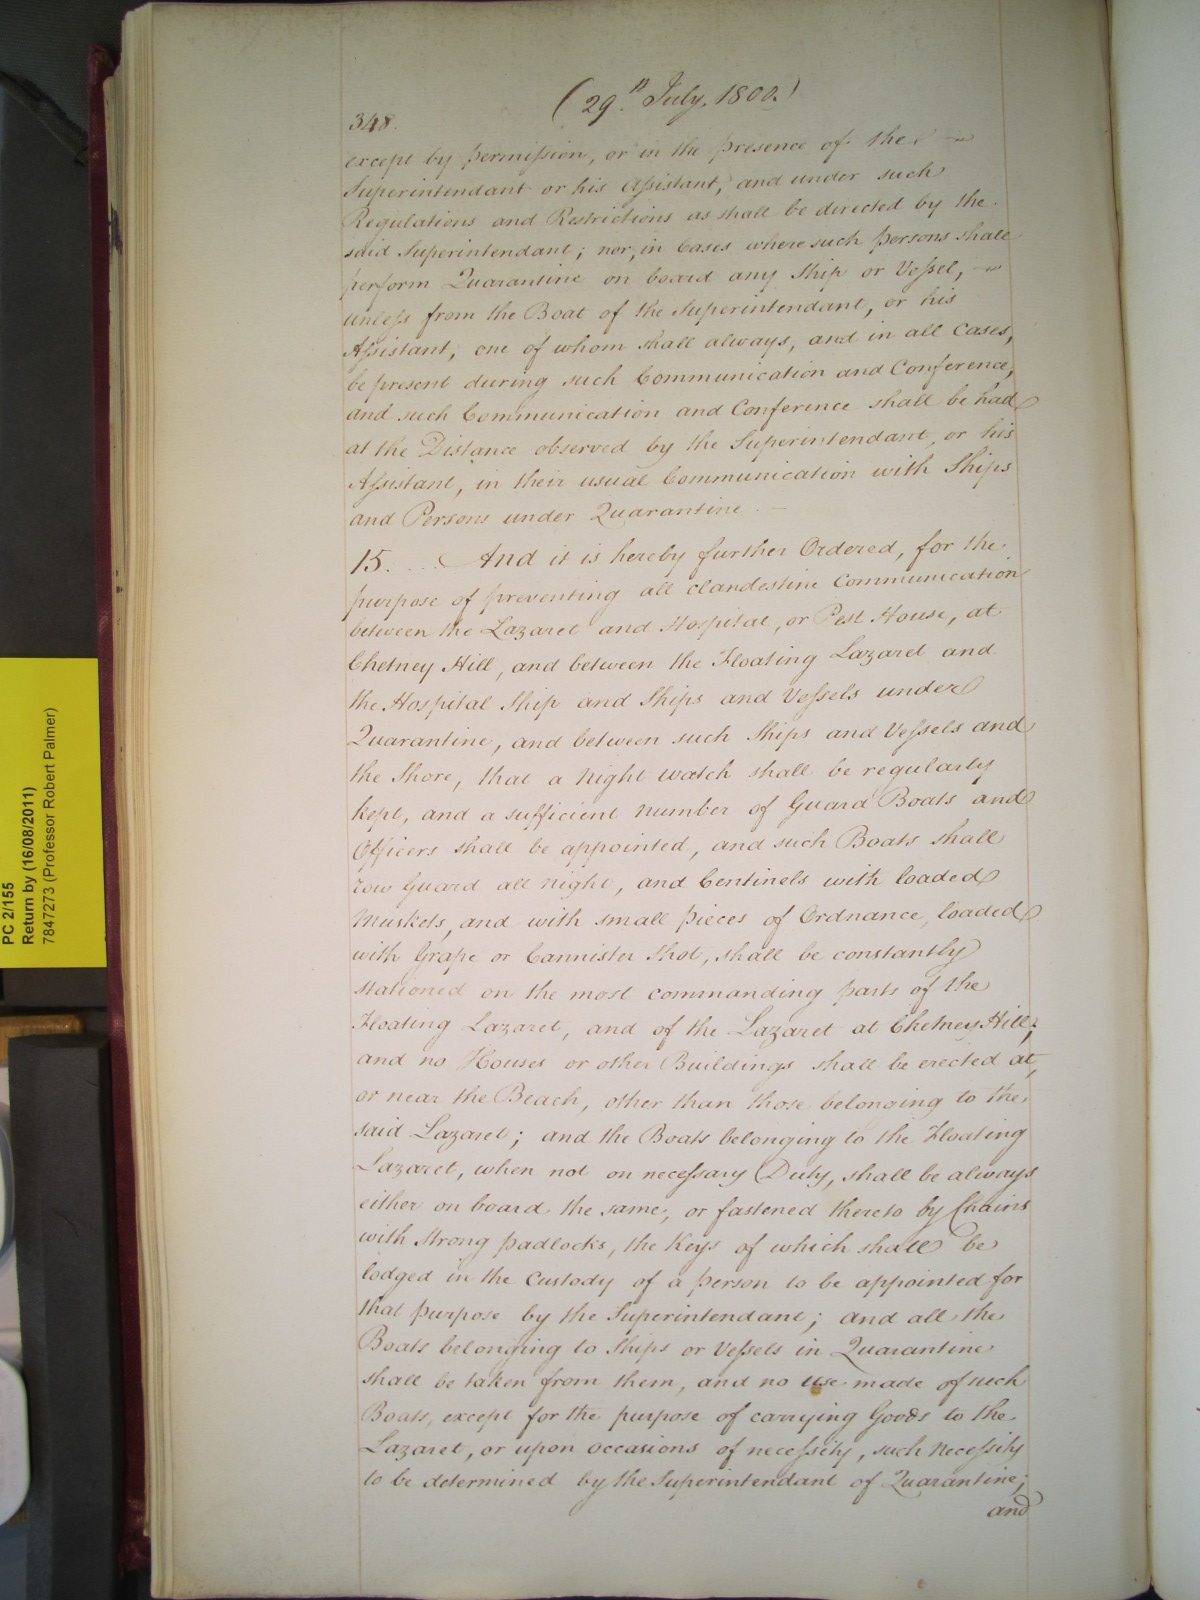 (29.th July, 1800.)
348.
except by permission, or in the presence of the
Superintendant or his Assistant, and under such
Regulations and Restrictions as shall be directed by the
said Superintendant; nor, in Cases where such persons shall
perform Quarantine on board any Ship or Vessel,
unless from the Boat of the Superintendant, or his
Assistant, one of whom shall always, and in all Cases,
be present during such Communication and Conference,
and such Communication and Conference shall be had
at the Distance observed by the Superintendant, or his
Assistant, in their usual Communication with Ships
and Persons under Quarantine.
15. ... And it is hereby further Ordered, for the
purpose of preventing all clandestine Communication
between the Lazaret and Hospital, or Pest House, at
Chetney Hill, and between the Floating Lazaret and
the Hospital Ship and Ships and Vessels under
Quarantine, and between such Ships and Vessels and
the Shore, that a Night watch shall be regularly
kept, and a sufficient Number of Guard Boats and
Officers shall be appointed, and such Boats shall
row Guard all Night, and Centinels with loaded
Muskets, and with small pieces of Ordnance, loaded
with Grape or Cannister Shot, shall be constantly
stationed on the most commanding parts of the
Floating Lazaret, and of the Lazaret at Chetney Hill;
and no Houses or other Buildings shall be erected at,
or near the Beach, other than those belonging to the
said Lazaret; and the Boats belonging to the Floating
Lazaret, when not on necessary Duty, shall be always
either on board the same, or fastened thereto by Chains
with strong padlocks, the Keys of which shall be
lodged in the Custody of a person to be appointed for
that purpose by the Superintendant; and all the
Boats belonging to Ships or Vessels in Quarantine
shall be taken from them, and no use made of such
Boats, except for the purpose of carrying Goods to the
Lazaret, or upon occasions of necessity, such Necessity
to be determined by the Superintendant of Quarantine;
and
PC 2/155
Return by (16/08/2011)
7847273 (Professor Robert Palmer)